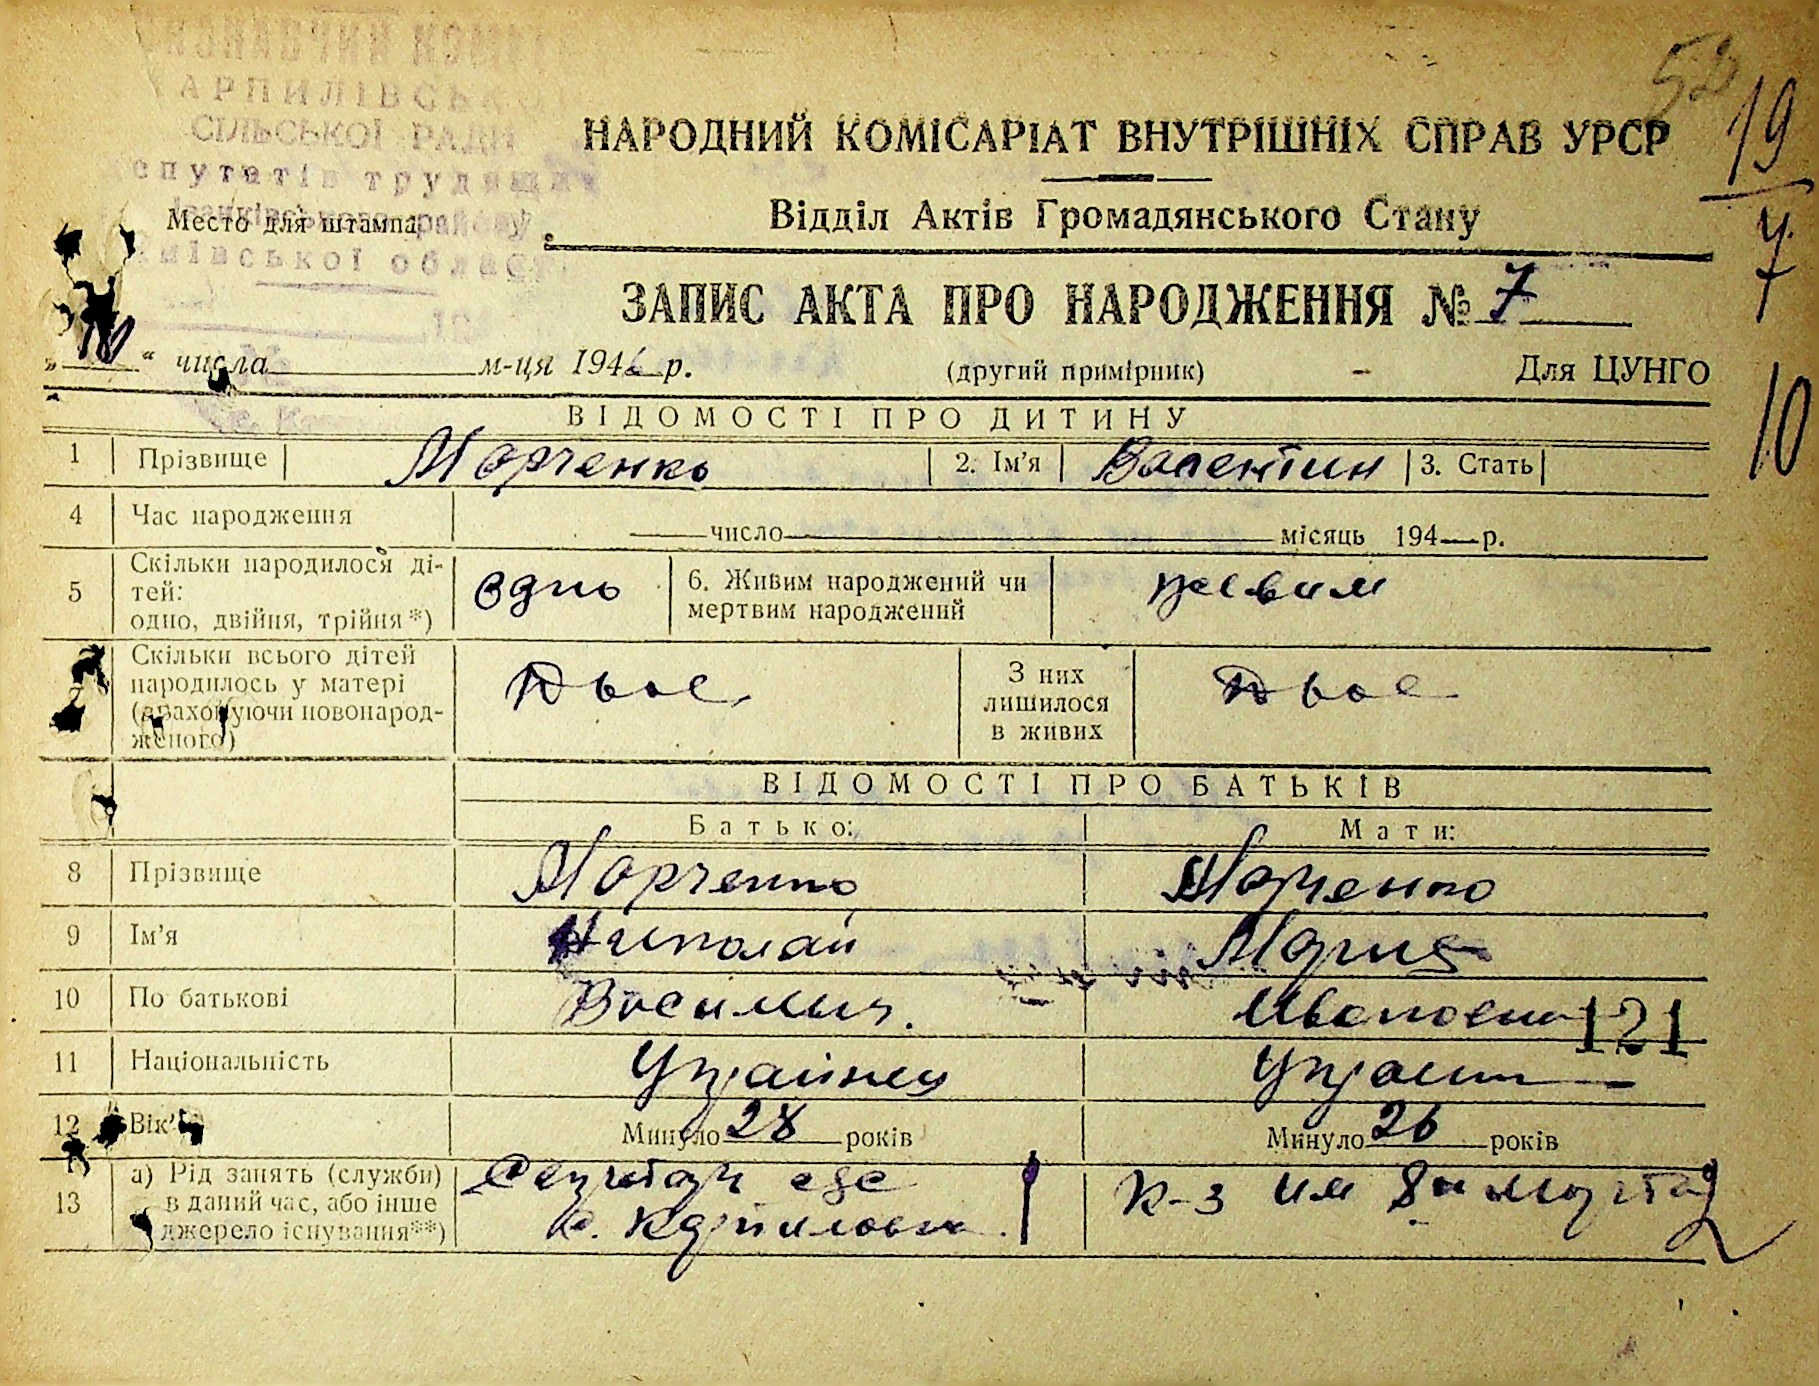 АРПИЛІВСЬКО
СІЛЬСЬКОЇ РАДИ
епутатів трудящих
Іванківського району
Київської області
52
19
7
10
НАРОДНИЙ КОМІСАРІАТ ВНУТРІШНІХ СПРАВ УРСР
Відділ Актів Громадянського Стану
Место для штампа
ЗАПИС АКТА ПРО НАРОДЖЕННЯ № 7
„ 10 “ числа м-ця 1946 р. (другий примірник) — Для ЦУНГО
ВІДОМОСТІ ПРО ДИТИНУ
1 Прізвище Марченко 2. Ім'я Валентин 3. Стать
4 Час народження число місяць 194 р.
5 Скільки народилося ді-
тей:
одно, двійня, трійня*) одно 6. Живим народжений чи
мертвим народжений живим
7 Скільки всього дітей
народилось у матері
(враховуючи новонарод-
женого) Двое З них
лишилося
в живих Двое
ВІДОМОСТІ ПРО БАТЬКІВ
Батько: Мати:
8 Прізвище Марченко Марченко
9 Ім'я Николай Мария
10 По батькові Ивановна
121
11 Національність Украинец
12 Вік Минуло 28 років Минуло 26 років
13 а) Рід занять (служби)
в даний час, або інше
джерело існування**)
с. Карпиловка К-з им 8го марта